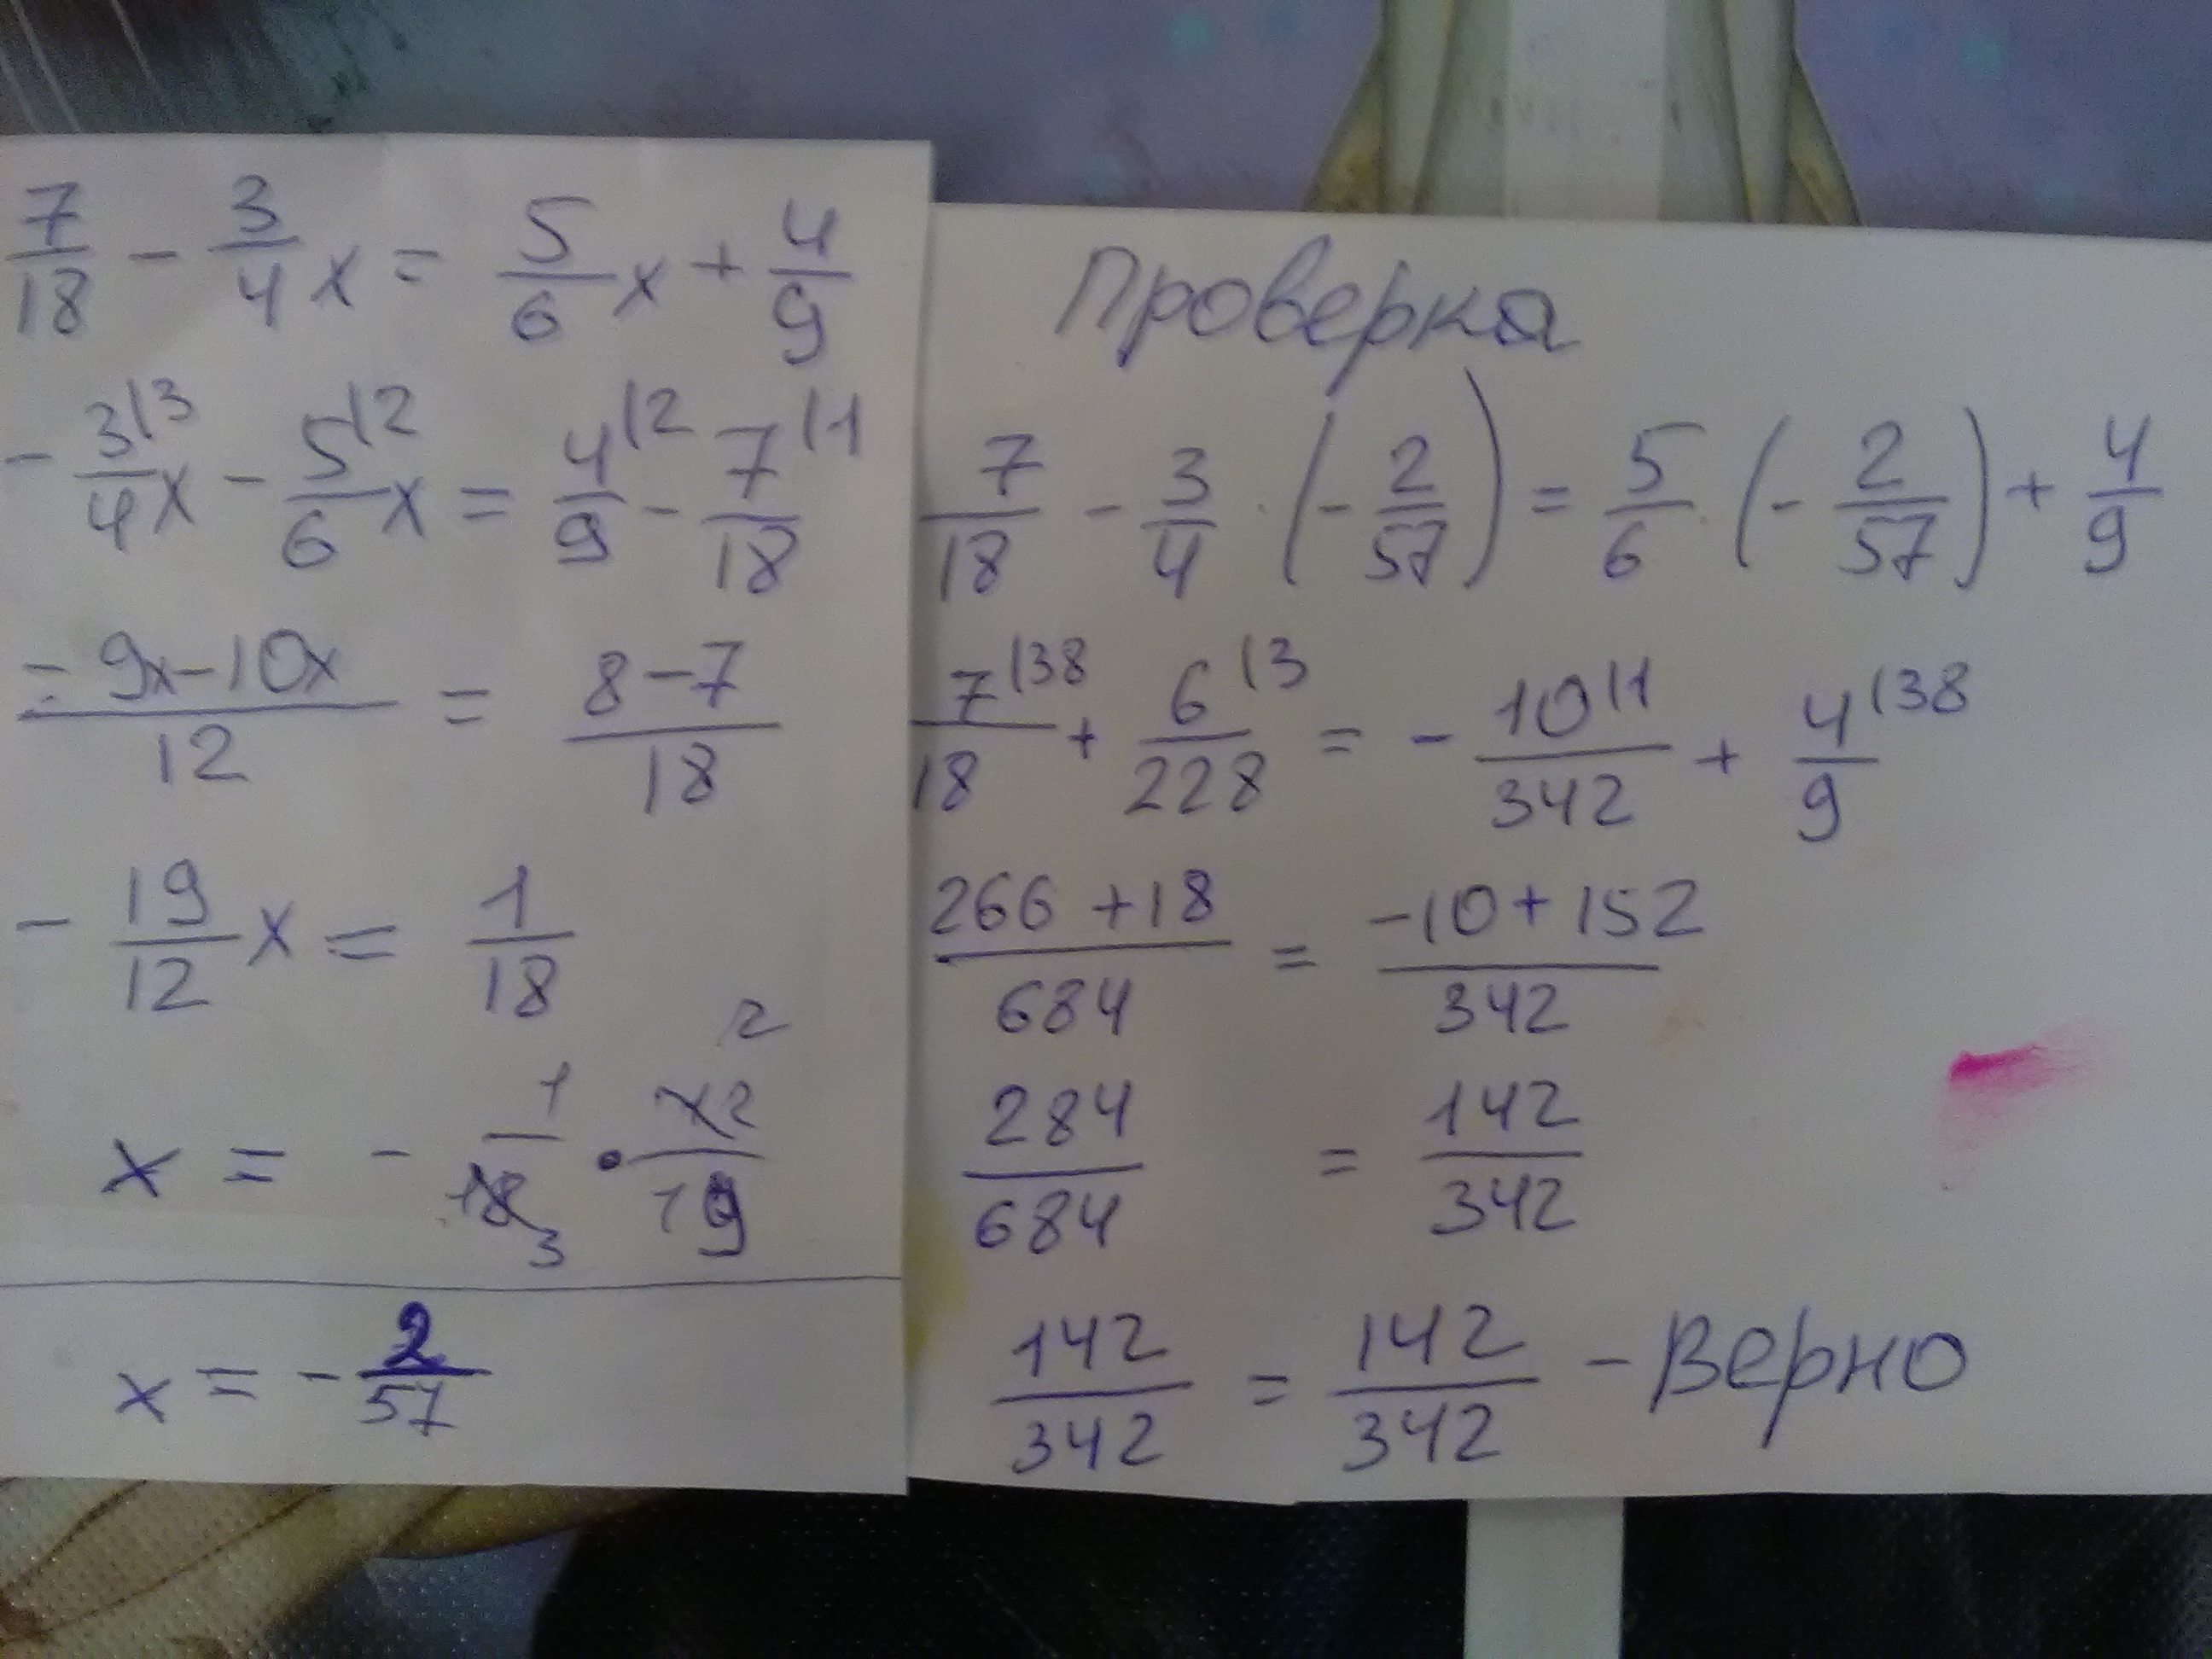 7/18 - 3/4 x = 5/6 x + 4/9
- 3|3/4 x - 5|2/6 x = 4|2/9 - 7|1/18
- 9x-10x/12 = 8-7/18
- 19/12 x = 1/18
2
x = - 1/18 3 · 12/19
x = - 2/57
Проверка
7/18 - 3/4 · (- 2/57) = 5/6 · (- 2/57) + 4/9
7|38/18 + 6|3/228 = - 10|1/342 + 4|38/9
266 +18/684 = -10+152/342
284/684 = 142/342
142/342 = 142/342 - верно